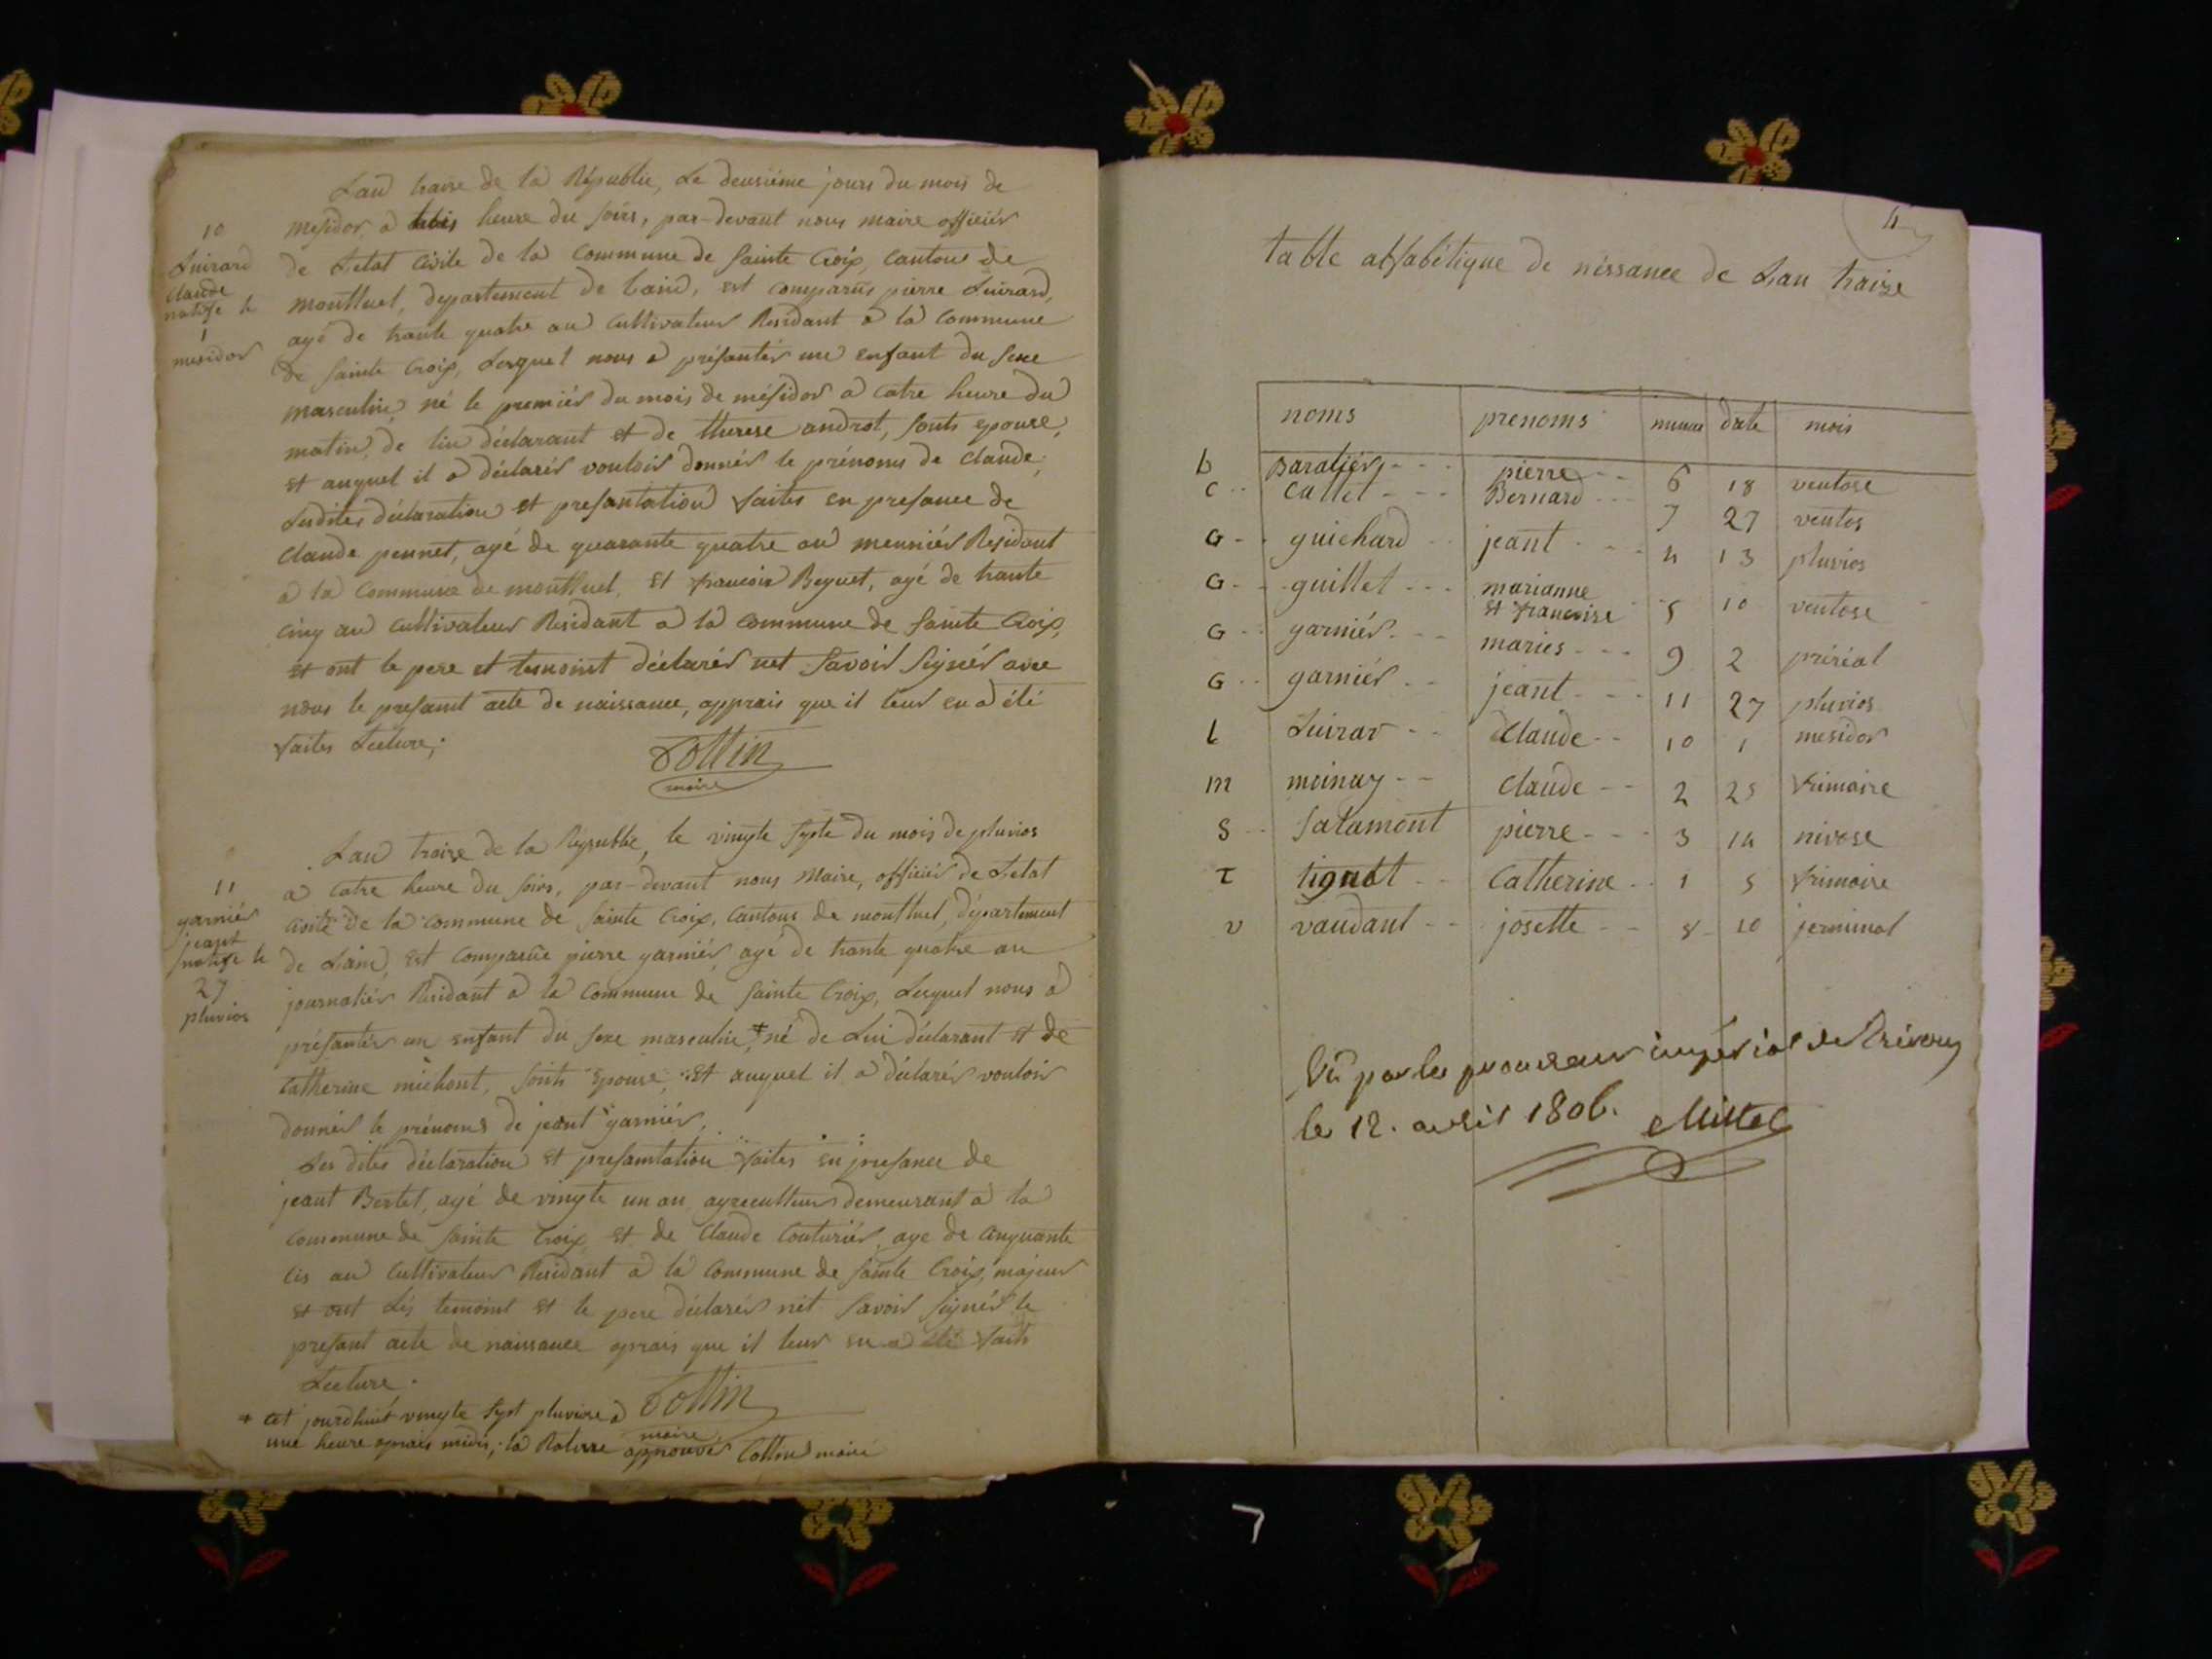 Lan traise de la République, Le deusiéme jours du mois de
mesidor, a trois heure du soirs, par-devant nous maire officiér
de Letat Civile de la Commune de Sainte Croix, Cantons de
montluel, departement de Laind, est comparüs pierre Luirard,
agé de trante quatre an Cultivateur Residant a la Commune
de Sainte Croix, Lesquel nous a présantér un enfant du sexe
masculin, né le premiér du mois de mésidor a Catre heure du
matin, de Lui déclarant et de therese androt, sonts epouse,
et auquel il a déclarér vouloir donnér le prénoms de Claude,
Lesdites déclaration et presantation faites en presance de
Claude pennet, agé de quarante quatre an meuniér Residant
a la Commune de montluel, et francois Beguet, agé de trante
cinq an Cultivateur Residant a la Commune de Sainte Croix,
et ont le pere et temoint déclarér net Savoir Signér avec
nous le presant acte de naissance, apprais que il leur en a été
faites Lecture,.
10
Luirard
claude
natife le
1
mesidor
Cottin
maire
Lan traise de la Republic, le vingte sypte du mois de pluvios
a Catre heure du soirs, par-devant nous Maire, officiér de Letat
Civile de la Commune de Sainte Croix, Cantons de montluel, département
de Laind, est comparüe pierre garniér, agé de trante quatre an
journaliér Residant a la Commune de Sainte Croix, Lesquel nous a
présantér un enfant du sexe masculin,* né de Lui déclarant et de
Catherine michont, sonts epouse, et auquel il a déclarér vouloir
donnér le prénoms de jeant garniér,
Les dites déclaration et presantation faites en presance de
jeant Bertet, agé de vingte un an, agreculteur demeurant a la
Commune de Sainte Croix et de Claude Couturiér, age de Cinquante
cis an Cultivateur Residant a la Commune de Sainte Croix, majeur
et ont Les temoint et le pere déclarér net Savoir Signér le
presant acte de naissance aprais que il leur en a été faits
Lecture.
11
garniér
jeant
natife le
27
pluvios
Cottin
maire
* Cet jourdhuit vingte sypt pluvios a
une heure aprais midis, la Rature approuvér Cottin maire
4
table alfabétique de néssance de Lan traize
noms prenoms numero date mois
b Baraliér pierre 6 18 ventose
c Callet Bernard 7 27 ventos
G guichard jeant 4 13 pluvios
G guillet marianne
et francoise 5 10 ventose
G garniér maries 9 2 préréal
G garniér jeant 11 27 pluvios
L Luirar Claude 10 1 mesidor
m moinay Claude 2 25 frimaire
S Salamont pierre 3 14 nivose
T tignat Catherine 1 5 frimaire
v vaudant josette 8 10 jerminal
Vû par le procureur impérial de Trévoux
le 12. avril 1806.